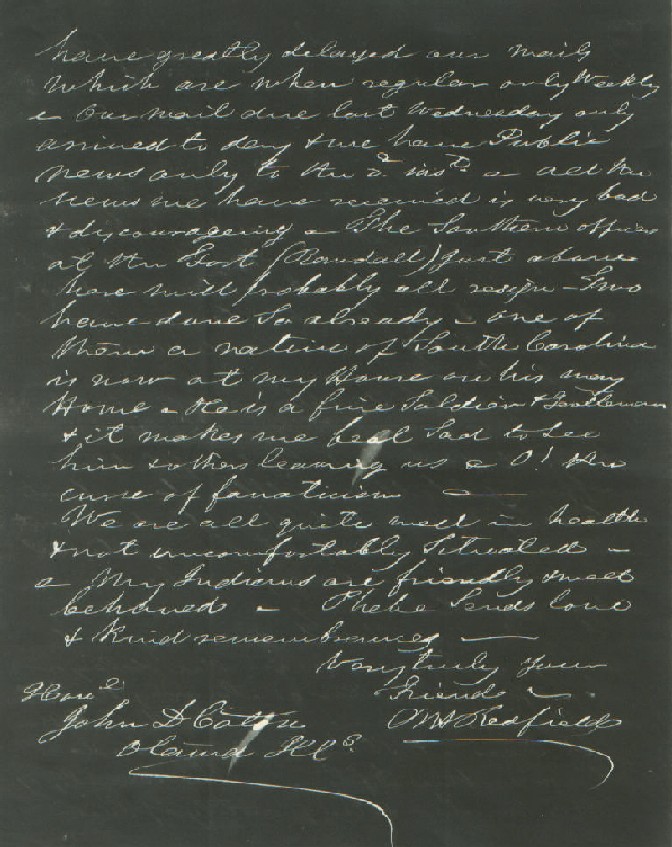 have greatly delayed our mails
which are when regular only Weekly
- Our mail due last Wednesday only
arrived to day & we have Public
news only to the 2d inst. - all the
news we have received is very bad
& discouraging - The Southern officers
at the Fort (Randall) just above
here will probably all resign - Two
have done so already - one of
them a native of South Carolina
is now at my House on his way
Home - He is a fine Soldier & Gentleman
& it makes me feel Sad to See
him & others leaving us - O! the
curse of fanaticism
We are all quite well in health
& not uncomfortably Situated -
- My Indians are friendly & well
behaved - Phebe Sends love
& Kind remembrances -
Very truly your
Friend
Honl
John D Caton
Ottawa Ills
A H Redfield